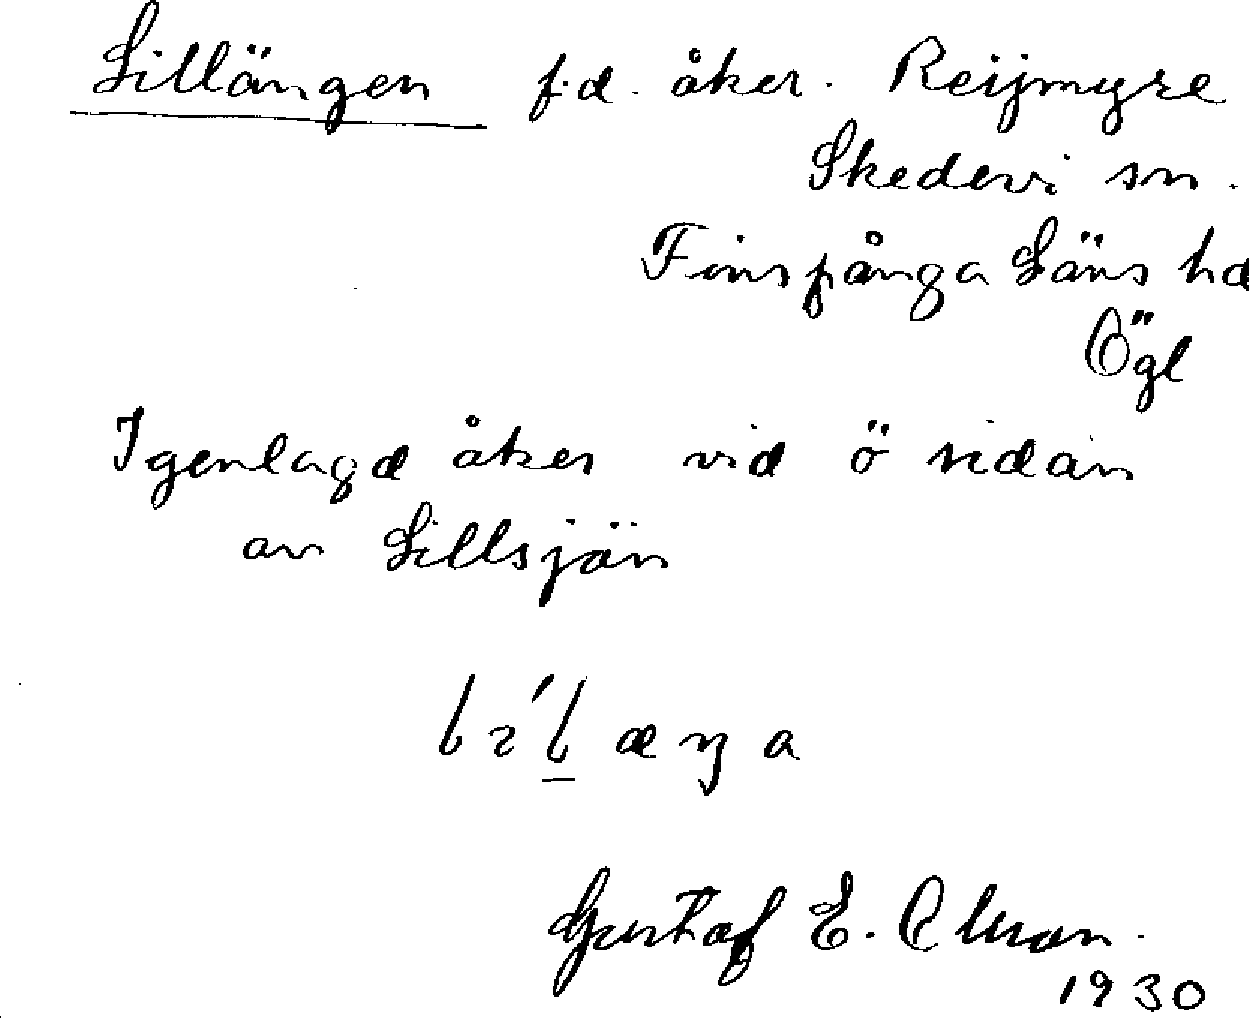 Lillängen f.d. åker. Reijmyre
Skedevi sn.
Finspånga Läns hd
Ögl
Igenlagd åker vid ö sidan
av Lillsjön
Gustaf E. Olsson.
1930